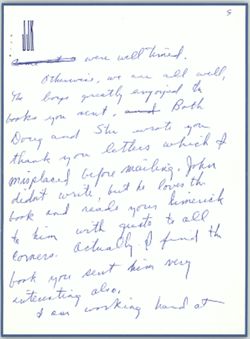 8
were well timed.
Otherwise, we are all well,
The boys greatly enjoyed the
books you sent. Both
Doug and She wrote you
thank you letters which I
misplaced before mailing. John
didn't write, but he loves the
book and reads your limerick
to him with gusto to all
comers. Actually I found the
book you sent him very
interesting also.
I am working hard at